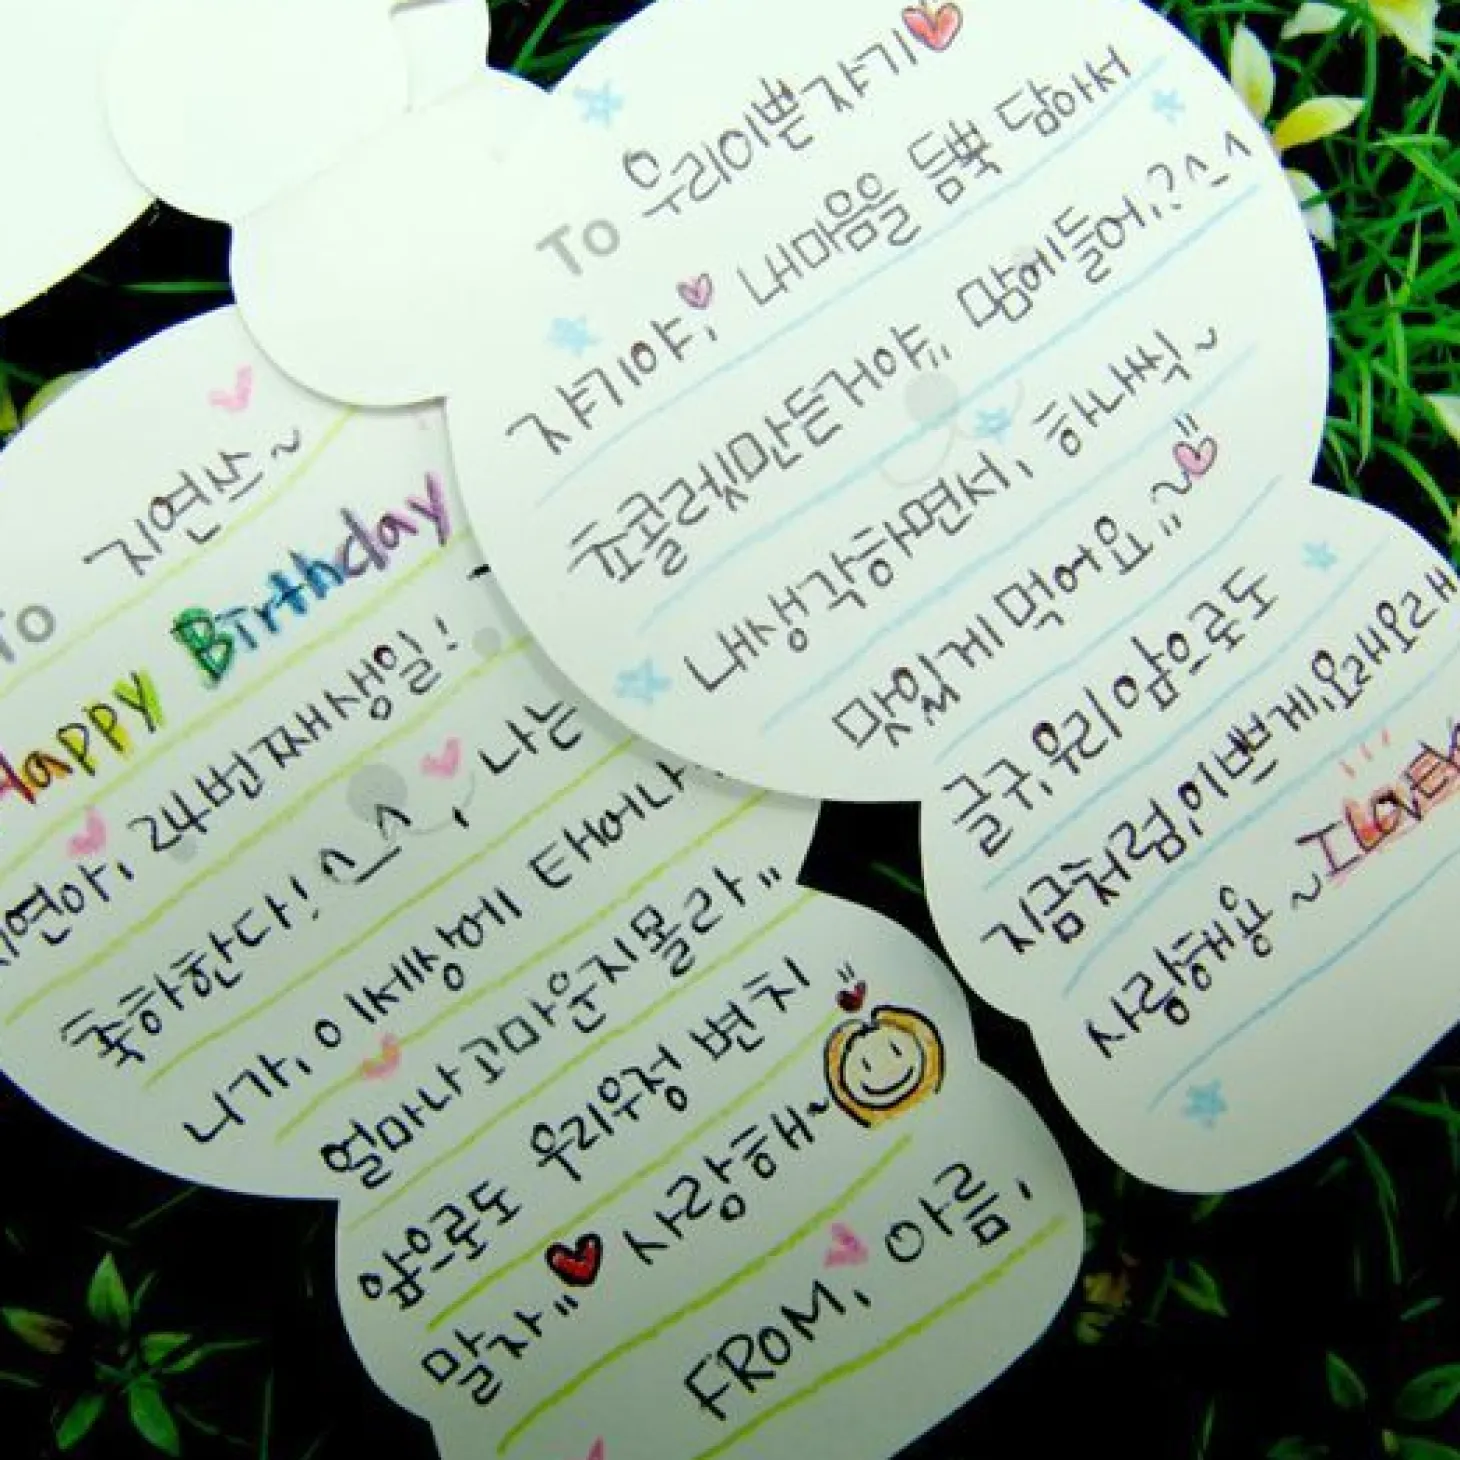 To 우리이쁜쟈기
쟈기야, 내마음을 듬뿍 담아서
쵸콜렛만든거야,, 맘에들어,? ^_^
내생각하면서, 하나씩~
맛있게 먹어요,,~
글구, 우리 앞으로도
지금처럼, 이쁘게, 요래요래
사랑해용~ I LOVE
To 지연쓰~
Happy Birthday
지연아, 24번째생일!
축하한다! ^_^, 나는
니가, 이세상에 태어나
얼마나 고마운지몰라"
앞으로도 우리우정 변치
말자" 사랑해~
FROM, 아름,